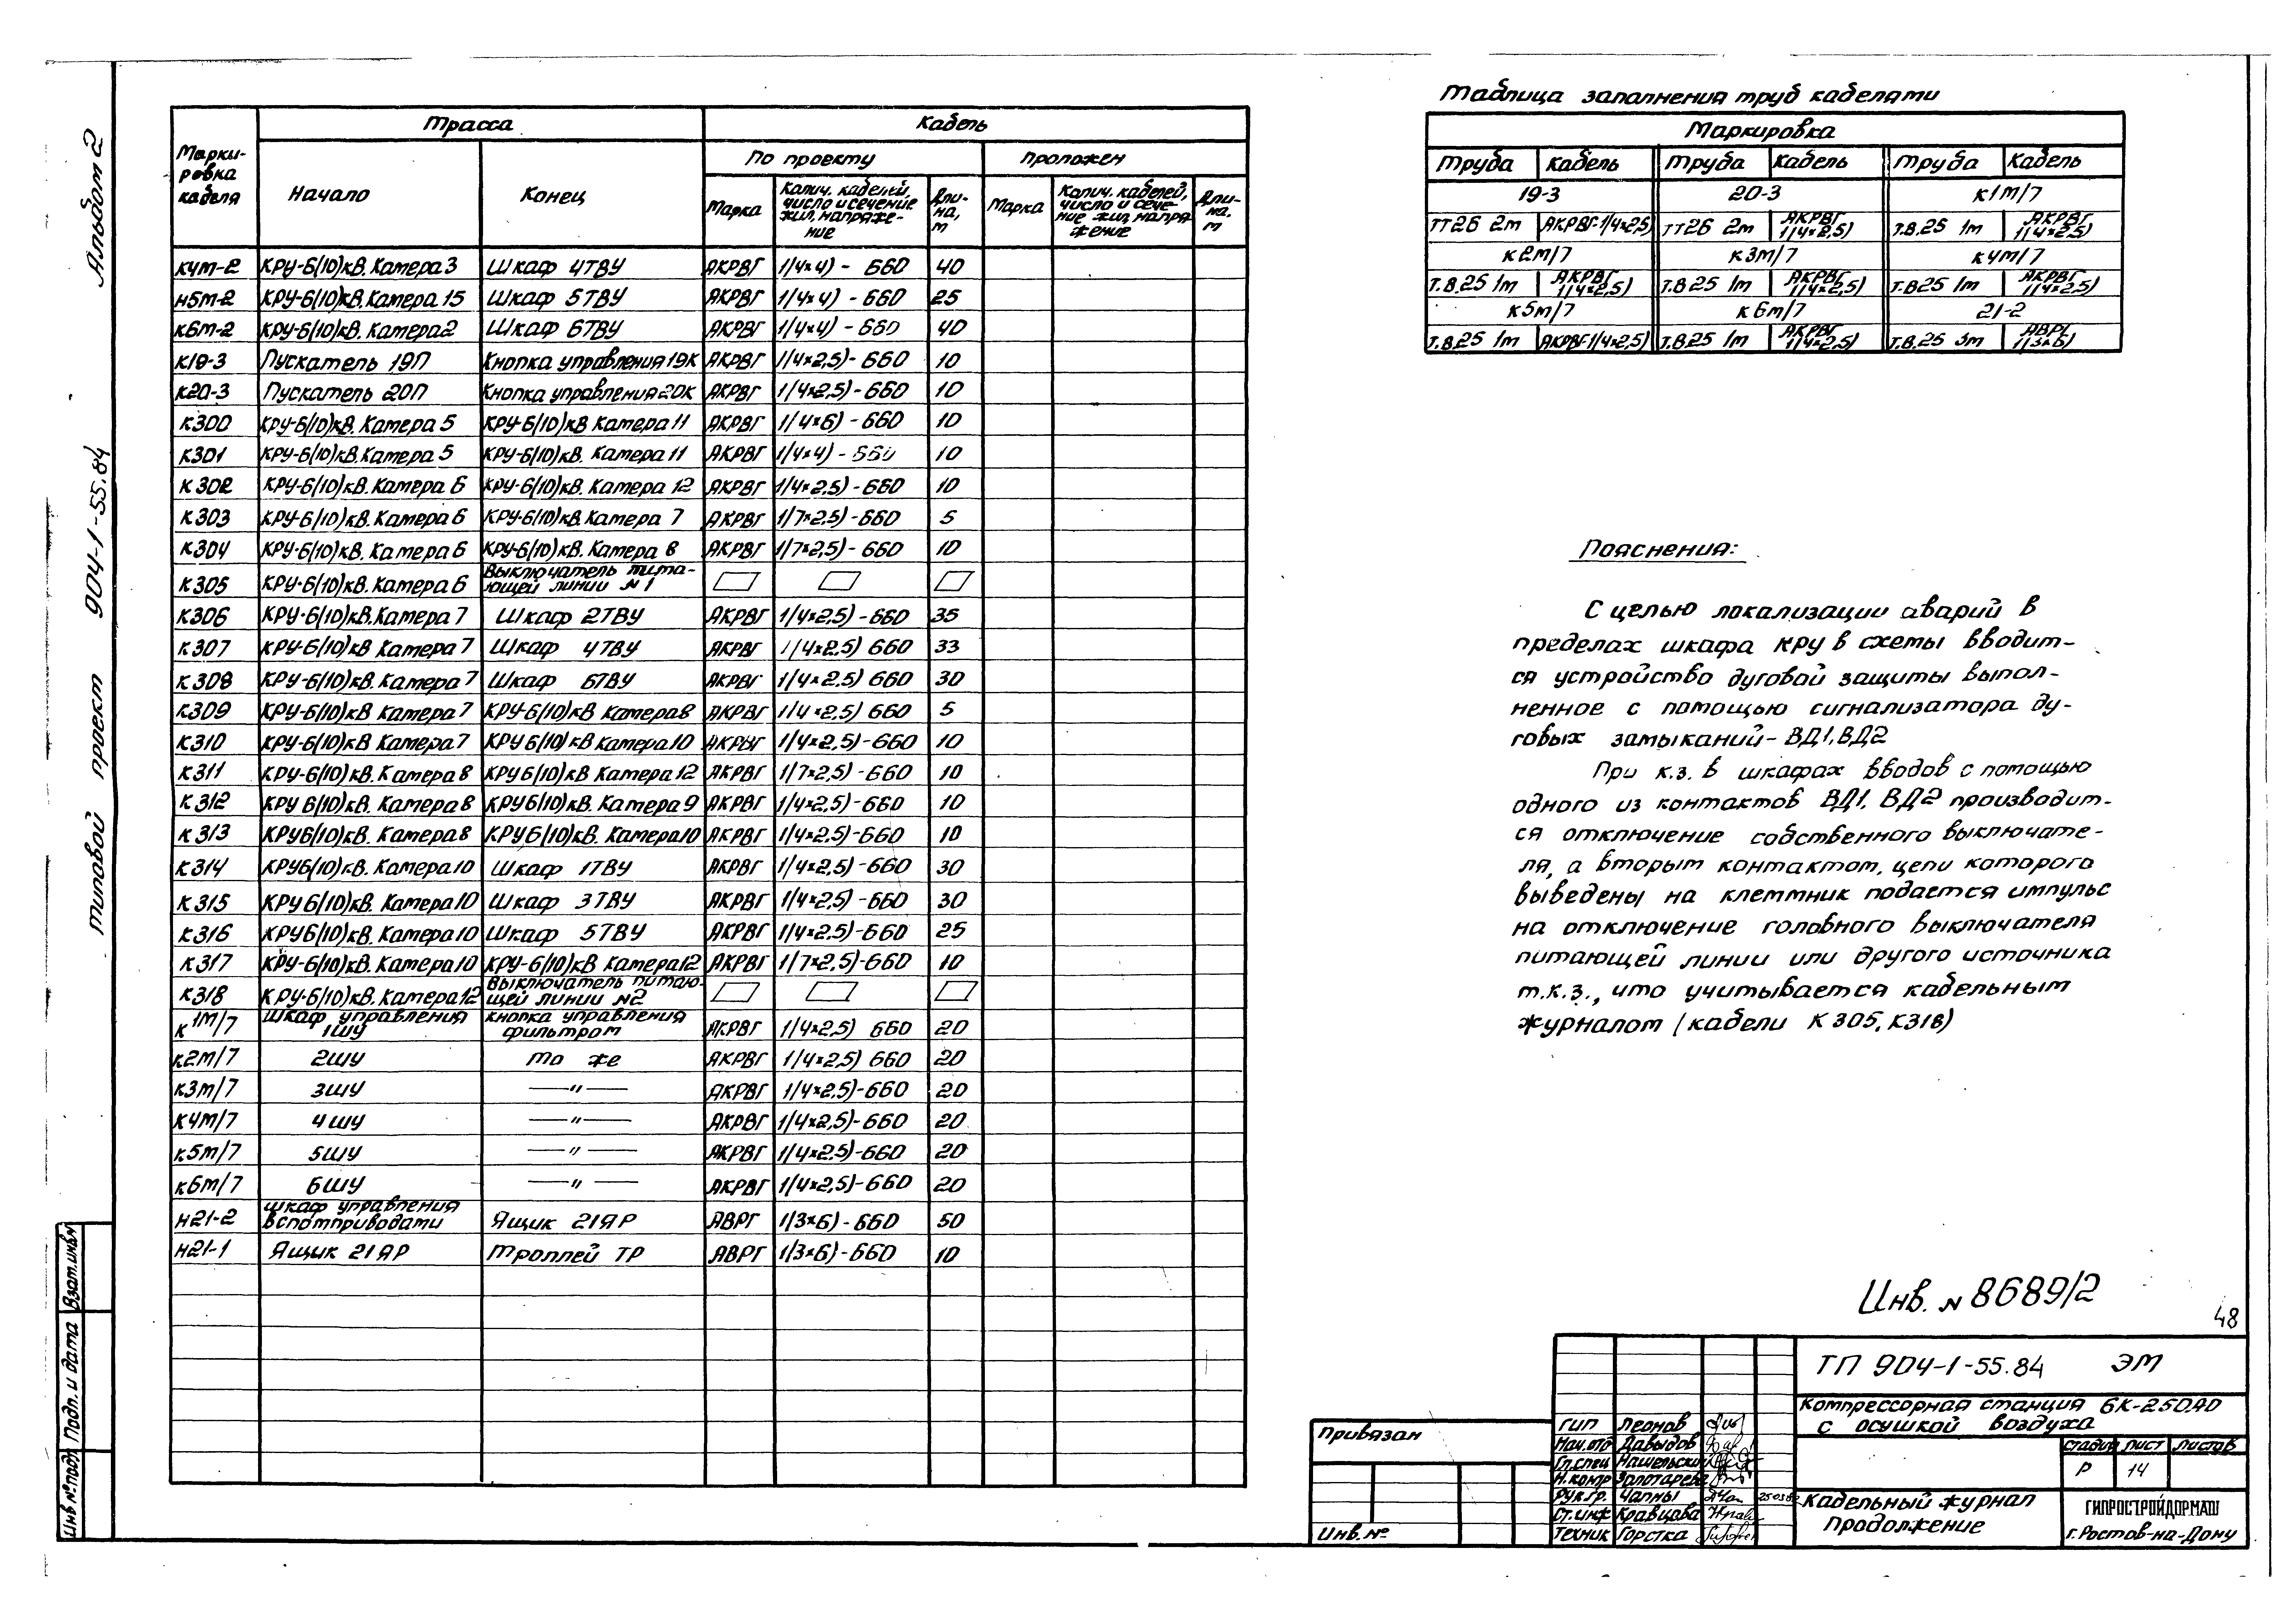 Альбом 2
Типовой проект 904-1-55.84
Марки-
ровка
кабеля
Трасса
Кабель
Начало
Конец
По проекту
проложен
Марка
Колич. кабелей,
число и сечение
жил, напряже-
ние
Дли-
на,
м
Марка
Колич. кабелей,
число и сече-
ние жил, напря
жение
Дли-
на,
м
К4м-2 КРУ-6(10)кВ. Камера 3 Шкаф 4ТВУ АКРВГ 1(4×4) - 660 40
Н5м-2 КРУ-6(10)кВ. Камера 15 Шкаф 5ТВУ АКРВГ 1(4×4) - 660 25
К6м-2 КРУ-6(10)кВ. Камера 2 Шкаф 6ТВУ АКРВГ 1(4×4) - 660 40
К19-3 Пускатель 19П Кнопка управления 19К АКРВГ 1(4×2,5)- 660 10
К20-3 Пускатель 20П Кнопка управления 20К АКРВГ 1(4×2,5)-660 10
К300 КРУ-6(10)кВ. Камера 5 КРУ-6(10)кВ Камера 11 АКРВГ 1(4×6) - 660 10
К301 КРУ-6(10)кВ. Камера 5 КРУ-6(10)кВ. Камера 11 АКРВГ 1(4×4) - 660 10
К302 КРУ-6(10)кВ. Камера 6 КРУ-6(10)кВ. Камера 12 АКРВГ 1(4×2,5) - 660 10
К303 КРУ-6(10)кВ. Камера 6 КРУ-6(10)кВ. Камера 7 АКРВГ 1(7×2,5) - 660 5
К304 КРУ-6(10)кВ. Камера 6 КРУ-6(10)кВ. Камера 8 АКРВГ 1(7×2,5) - 660 10
К305 КРУ-6(10)кВ. Камера 6 Выключатель пита-
ющей линии №1
К306 КРУ-6(10)кВ. Камера 7 Шкаф 2ТВУ АКРВГ 1(4×2,5) - 660 35
К307 КРУ-6(10)кВ Камера 7 Шкаф 4ТВУ АКРВГ 1(4×2,5) 660 33
К308 КРУ-6(10)кВ. Камера 7 Шкаф 6ТВУ АКРВГ 1(4×2,5) 660 30
К309 КРУ-6(10)кВ Камера 7 КРУ-6(10)кВ Камера 8 АКРВГ 1(4×2,5) 660 5
К310 КРУ-6(10)кВ Камера 7 КРУ 6(10)кВ Камера 10 АКРВГ 1(4×2,5)-660 10
К311 КРУ-6(10)кВ. Камера 8 КРУ 6(10)кВ Камера 12 АКРВГ 1(7×2,5) - 660 10
К312 КРУ 6(10)кВ. Камера 8 КРУ 6(10)кВ. Камера 9 АКРВГ 1(4×2,5)- 660 10
К313 КРУ 6(10)кВ. Камера 8 КРУ 6(10)кВ. Камера 10 АКРВГ 1(4×2,5)- 660 10
К314 КРУ 6(10)кВ. Камера 10 Шкаф 1ТВУ АКРВГ 1(4×2,5)- 660 30
К315 КРУ 6(10)кВ. Камера 10 Шкаф 3ТВУ АКРВГ 1(4×2,5)- 660 30
К316 КРУ 6(10)кВ. Камера 10 Шкаф 5ТВУ АКРВГ 1(4×2,5)-660 25
К317 КРУ-6(10)кВ. Камера 10 КРУ-6(10)кВ Камера 12 АКРВГ 1(7×2,5)-660 10
К318 КРУ-6(10)кВ. Камера 12 Выключатель питаю-
щей линии №2
К1М/7 Шкаф управления
1ШУ
Кнопка управления
фильтром
АКРВГ 1(4×2,5) 660 20
К2М/7 2ШУ То же АКРВГ 1(4×2,5) 660 20
К3М/7 3ШУ —"— АКРВГ 1(4×2,5)-660 20
К4М/7 4ШУ —"— АКРВГ 1(4×2,5)-660 20
К5М/7 5ШУ —"— АКРВГ 1(4×2,5)-660 20
К6М/7 6ШУ —"— АКРВГ 1(4×2,5)-660 20
Н21-2 Шкаф управления
вспомприводами
Ящик 21ЯР АВРГ 1(3×6)- 660 50
Н21-1 Ящик 21ЯР Троллей ТР АВРГ 1(3×6)-660 10
Таблица заполнения труб кабелями
Маркировка
Труба Кабель Труба Кабель Труба Кабель
19-3 20-3 К1М/7
ТТ26 2м АКРВГ-1(4×2,5) ТТ26 2м АКРВГ 1(4×2,5) Т.В.25 1м АКРВГ 1(4×2,5)
К2М/7 К3М/7 К4М/7
Т.В.25 1м АКРВГ 1(4×2,5) Т.В 25 1м АКРВГ 1(4×2,5) Т.В25 1м АКРВГ 1(4×2,5)
К5М/7 К6М/7 21-2
Т.В.25 1м АКРВГ 1(4×2,5) Т.В.25 1м АКРВГ 1(4×2,5) Т.В.25 3м АВРГ 1(3×6)
Пояснения:
С целью локализации аварий в
пределах шкафа КРУ в схемы вводит-
ся устройство дуговой защиты выпол-
ненное с помощью сигнализатора ду-
говых замыканий- ВД1, ВД2
При к.з. в шкафах вводов с помощью
одного из контактов ВД1, ВД2 производит-
ся отключение собственного выключате-
ля, а вторым контактом, цепи которого
выведены на клеммник подается импульс
на отключение головного выключателя
питающей линии или другого источника
т.к.з., что учитывается кабельным
журналом (кабели К305, К318)
Инв. № 8689/2
48
ТП 904-1-55.84 ЭМ
Компрессорная станция 6К-250АО
с осушкой воздуха
Стадия Лист Листов
Р 14
Кабельный журнал
Продолжение
ГИПРОСТРОЙДОРМАШ
г. Ростов-на-Дону
ГИП Леонов
Нач.отд Давыдов
Гл.спец Нашельский
Н.контр Золотарева
Рук.гр. Чапны
Ст.инж Кравцова
Техник Горстка
Привязан
Инв. №
Взам.инв№
Подп. и дата
Инв № подл